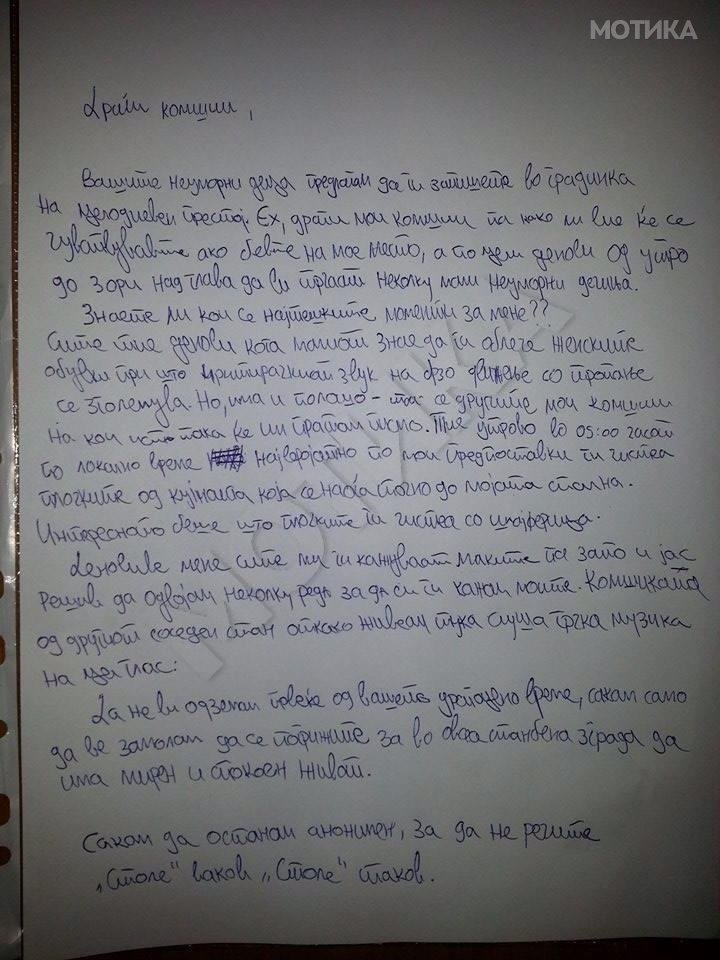 МОТИКА
Драги комшии,
Вашите неуморни деца предлагам да ги запишете во градинка
на целодневен престој. Ех, драги мои комшии па како ли вие ќе се
чувствувавте ако бевте на мое место, а по цели денови од утро
до зори над глава да ви трчаат неколку мали неуморни дечиња.
Знаете ли кои се најтешките моменти за мене??
Сите тие денови кога малиот знае да ги облече женските
обувки при што иритирачкиот звук на брзо движење со тропање
се зголемува. Но, има и полошо - тоа се другите мои комшии
на кои исто така ќе им пратам писмо. Тие утрово во 05:00 часот
по локално време најверојатно по мои предпоставки ги чистеа
плочките од кујната која се наоѓа точно до мојата спална.
Интересното беше што плочките ги чистеа со шмиргла.
Деновиве мене сите ми ги кажуваат маките па зато и јас
решив да одвојам неколку реда за да си ги кажам моите. Комшиката
од другиот соседен стан откако живеам тука слуша грчка музика
на цел глас:
Да не ви одземам повеќе од вашето драгоцено време, сакам само
да ве замолам да се погрижите за во оваа станбена зграда да
има мирен и спокоен живот.
Сакам да останам анонимен, за да не речите
„Столе" ваков „Столе" таков.
МОТИКА